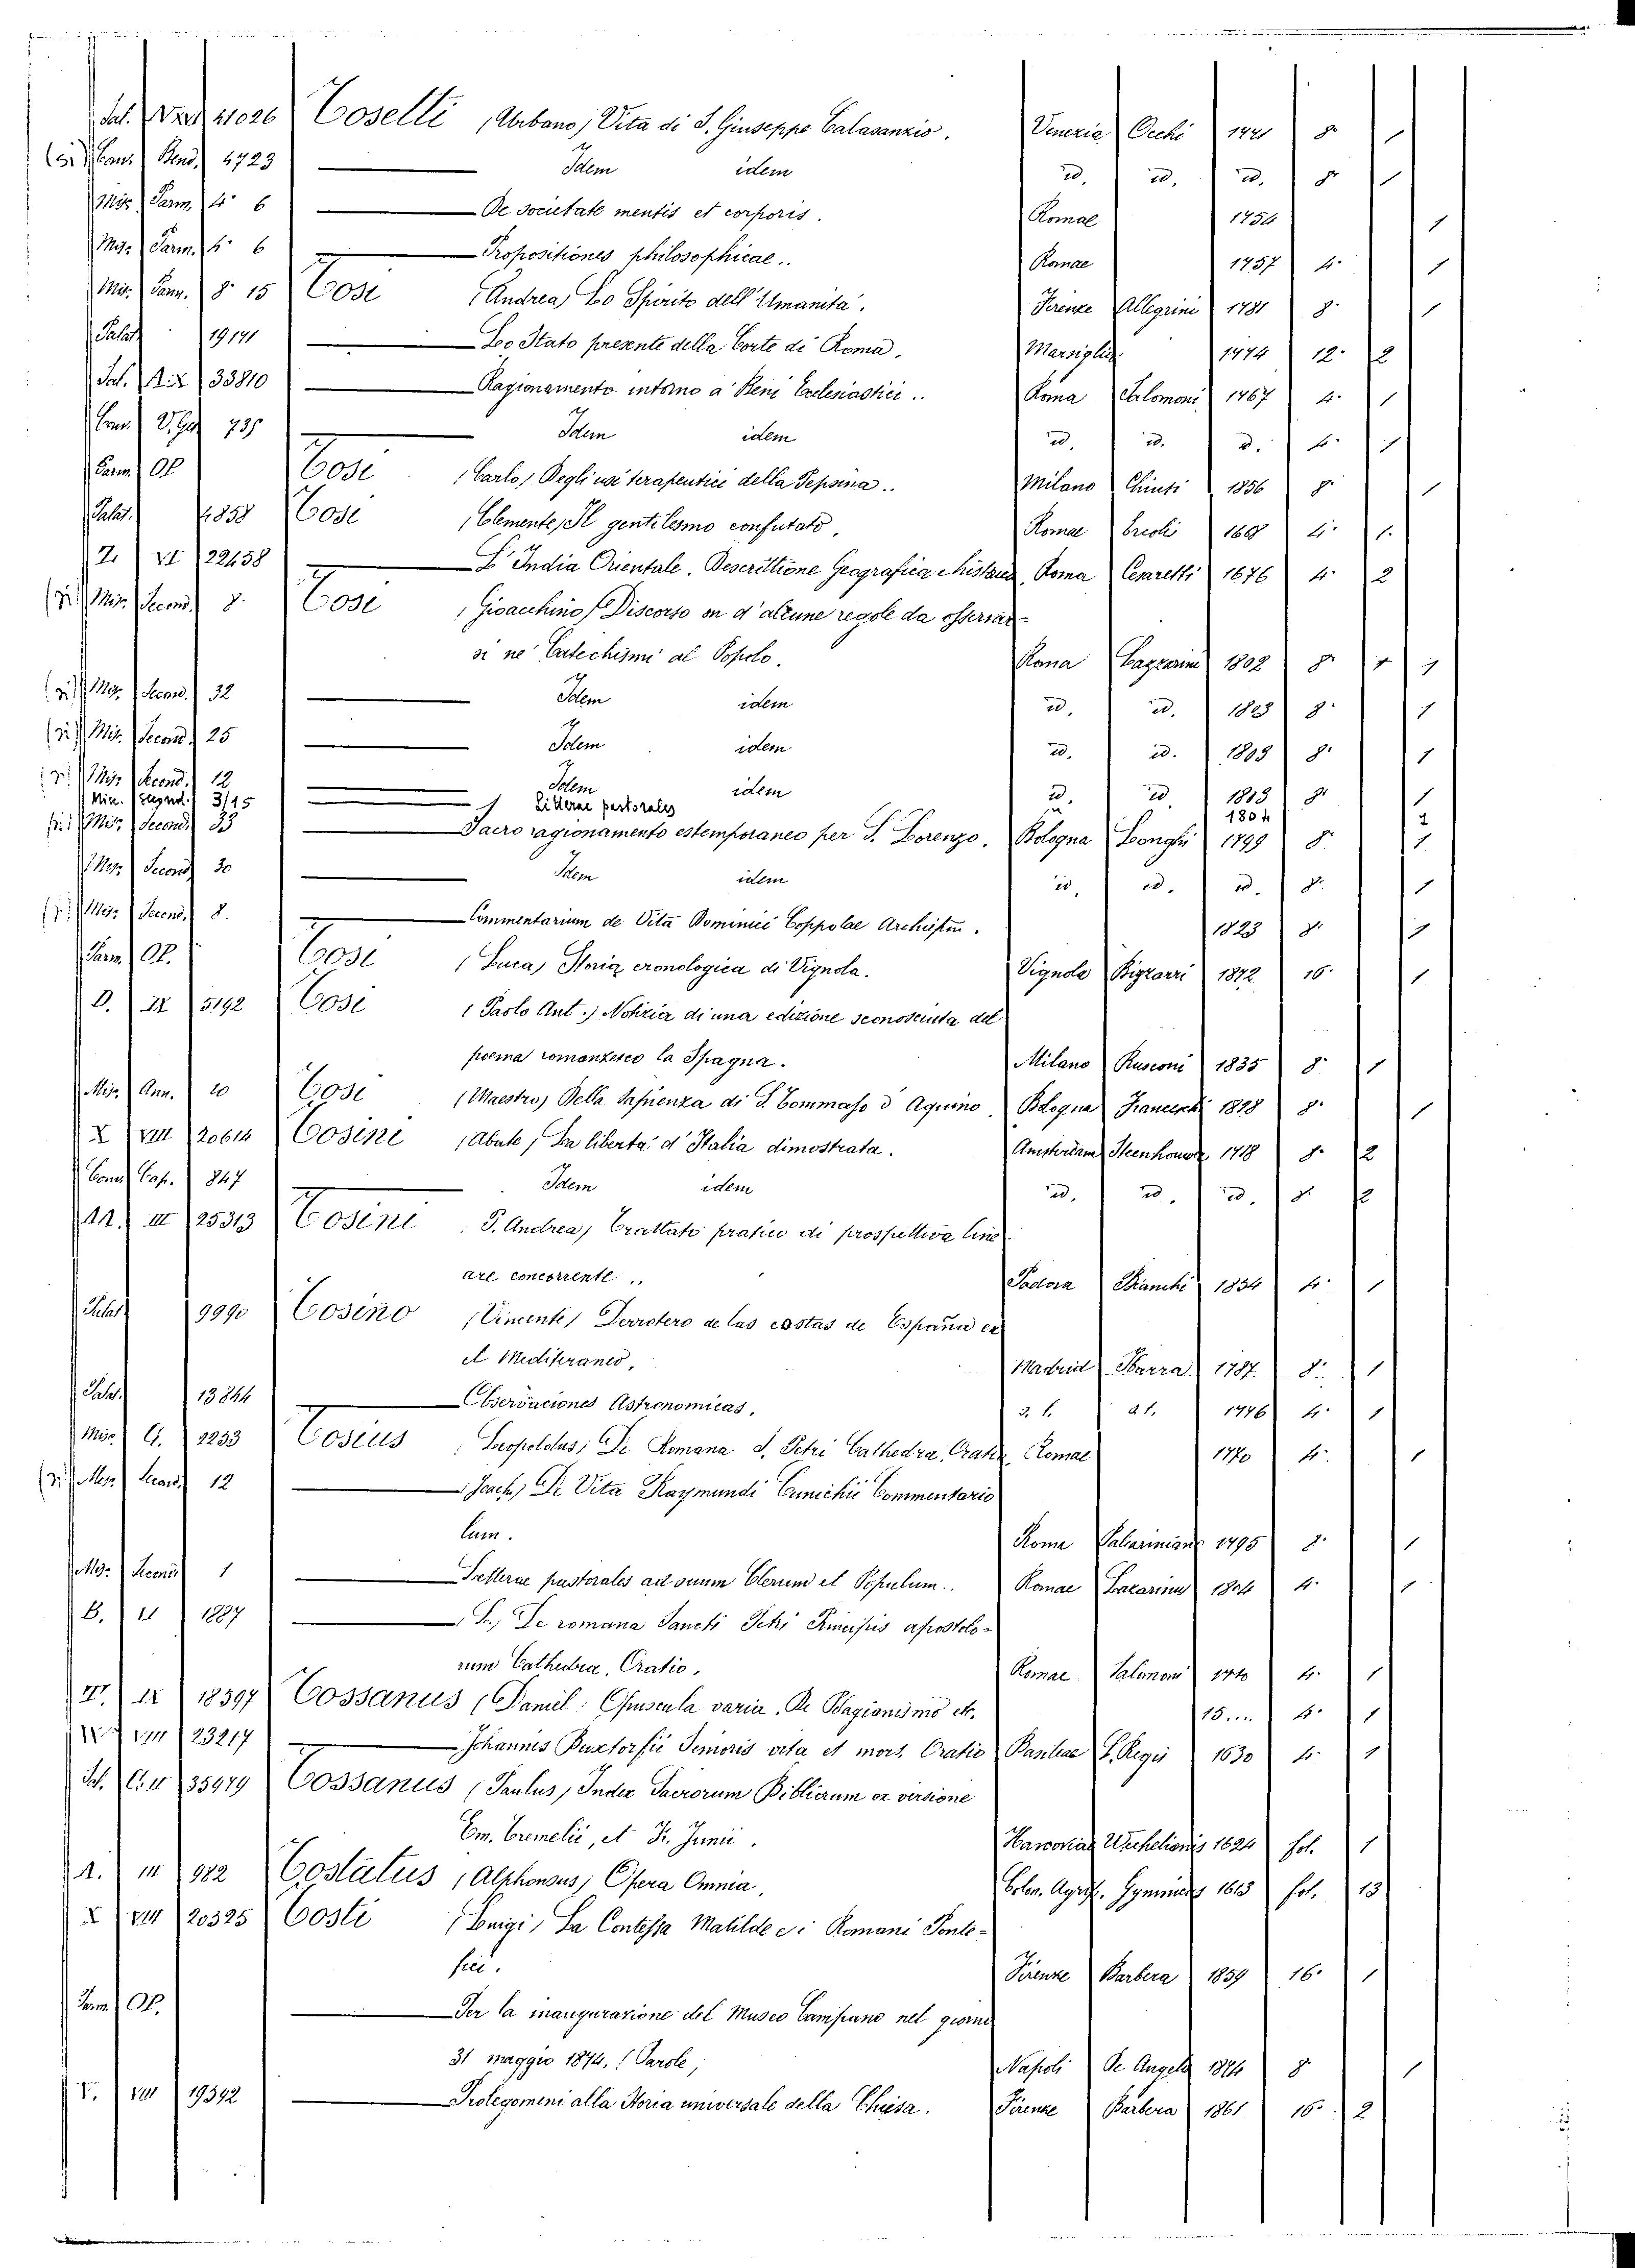 Sal. 41026 Toselli (Urbano) Vita di S. Giuseppe Calasanzio. Venezia Occhi 8° 1
Cons. Bend. 4723 Idem idem id. id. id. 8° 1
Mis. Parm. 4° 6 De societate mentis et corporis. Romae 1754 1
Mis. Parm. 4° 6 Propositiones philosophicae.. Romae 1757 4° 1
Mis. Parm. 8° 15 Tosi (Andrea) Lo Spirito dell'Umanità. Firenze Allegrini 1781 8° 1
Palat. 19141 Lo Stato presente della Corte di Roma. Marsiglia 1774 12° 2
Sal. 33810 Ragionamento intorno a' Beni Ecclesiastici.. Roma Salomoni 1767 4° 1
Cons. 735 Idem idem id. id. id. 4° 1
Parm. OP. Tosi (Carlo) Degli usi terapeutici della Pepsina.. Milano Chiusi 1856 8° 1
Palat. 4858 Tosi (Clemente) Il gentilesmo confutato. Romae Ercoli 4° 1.
Z. VI 22458 L'India Orientale. Descrittione Geografica e historica. Roma Cesaretti 1676 4° 2
Mis. Second. 8° Tosi (Gioacchino) Discorso su d'alcune regole da osservar=
si ne' Catechismi al Popolo. Roma Lazzarini 1802 8° 1
Mis. Second. 32 Idem idem id. id. 1803 8° 1
Mis. Second. 25 Idem idem id. id. 1803 8° 1
Mis. Second. 12 Idem idem id. id. 1803 8° 1
Min. Second. 3/15 Litterae pastorales 1804 1
Mis. Second. 33 Sacro ragionamento estemporaneo per S. Lorenzo. Bologna Longhi 1799 8° 1
Mis. Second. 30 Idem idem id. id. id. 8° 1
Mis. Second. 8. Commentarium de Vita Dominici Coppolae Archiepsc. 1823 8° 1
Parm. OP. Tosi (Luca) Storia cronologica di Vignola. Vignola Bigzarri 1872 16° 1
D. IX 5192 Tosi (Paolo Ant.) Notizia di una edizione sconosciuta del
poema romanzesco la Spagna. Milano Rusconi 1835 8° 1
Mis. Ann. 20 Tosi (Maestro) Della Sapienza di S. Tommaso d'Aquino. Bologna 1828 8° 1
X VIII 20614 Tosini (Abate) La libertà d'Italia dimostrata. Amsterdam Steenhouwer 1718 8° 2
Cons. Cap. 847 Idem idem id. id. id. 8° 2
AA. III 25313 Tosini P. Andrea) Trattato pratico di prospettiva line
are concorrente.. Padova Bianchi 1834 4° 1
Palat. 9990 Tosino (Vincente) Derrotero de las costas de España en
el Mediterraneo. Madrid Ibarra 1787 8° 1
Palat. 13844 Observaciones Astronomicas. 1776 4° 1
Mis. G. 1233 Tosius Leopoldus) De Romana S. Petri Cathedra, Oratio Romae 1770 4° 1
Mis. Second. 12 Joach.) De Vita Raymundi Cunichii Commentario
lum. Roma Palearinian. 1795 8° 1
Mis. Second. 1 Litterae pastorales ad suum Clerum et Populum.. Romae Lazarinus 1804 4° 1
B. II 1887 L.) De romana Sancti Petri Principis apostolo=
rum Cathedra, Oratio. Romae Salomoni 1770 4° 1
IX 18397 Tossanus (Daniel: Opuscula varia. De Pelagianismo etc. 15.... 8° 1
VIII 23217 Johannis Buxtorfii Senioris vita et mors. Oratio Basileae L. Regis 1630 4° 1
Sal. 35479 Tossanus (Paulus) Index Sacrorum Bibliorum ex versione
Em. Tremelii, et Fr. Junii. Hanoviae Wechelianis 1624 fol. 1
A. III 982 Tostatus (Alphonsus) Opera Omnia. Colon. Agripp. Gymnicus 1613 fol. 13
X VIII 20325 Tosti (Luigi) La Contessa Matilde e i Romani Ponte=
fici. Firenze Barbera 1859 16° 1
Parm. OP. Per la inaugurazione del Museo Campano nel giorno
31 maggio 1874. (Parole) Napoli De Angelis 1874 8° 1
V. VIII 19392 Prolegomeni alla Storia universale della Chiesa. Firenze Barbera 1861 16° 2